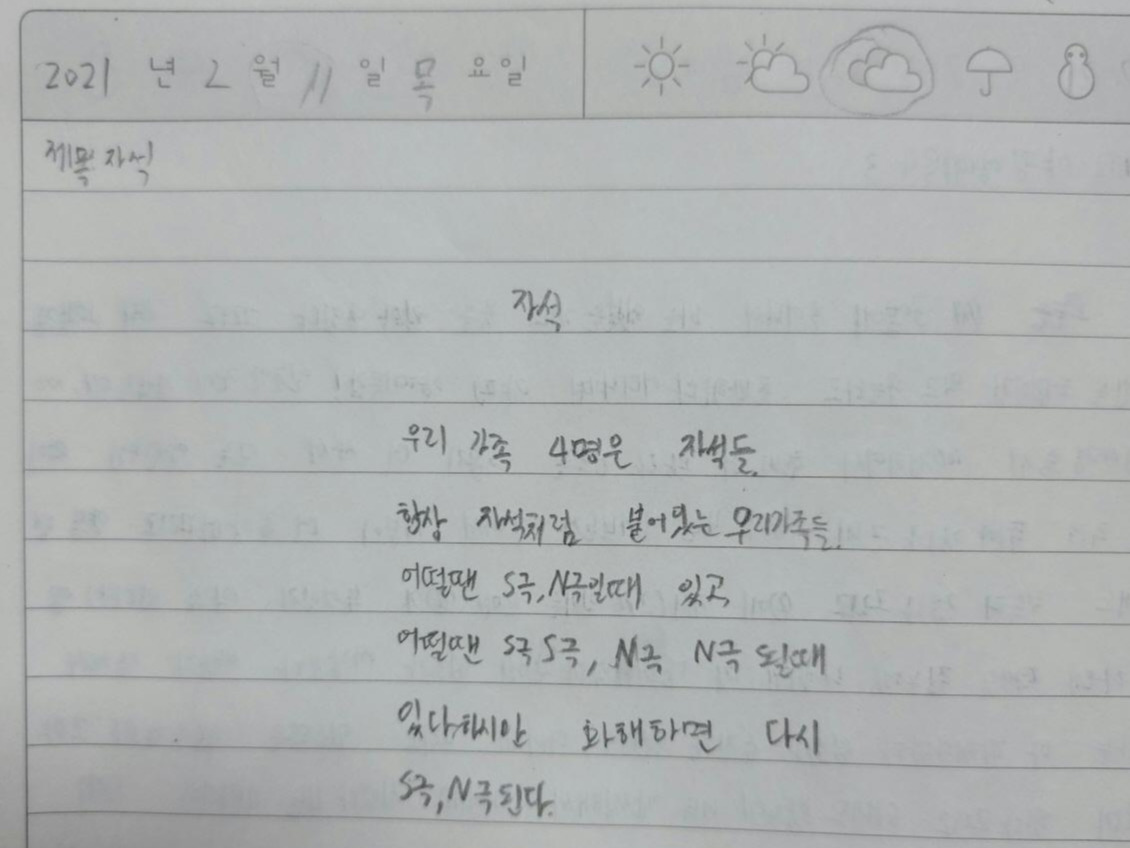 2021 년 2 월 11 일 목 요일
제목 자석
자석
우리 가족 4명은 자석들.
항상 자석처럼 붙어있는 우리가족들.
어떨땐 S극,N극일때 있고
어떨땐 S극 S극, N극 N극 될때
있다.하지만 화해하면 다시
S극,N극된다.